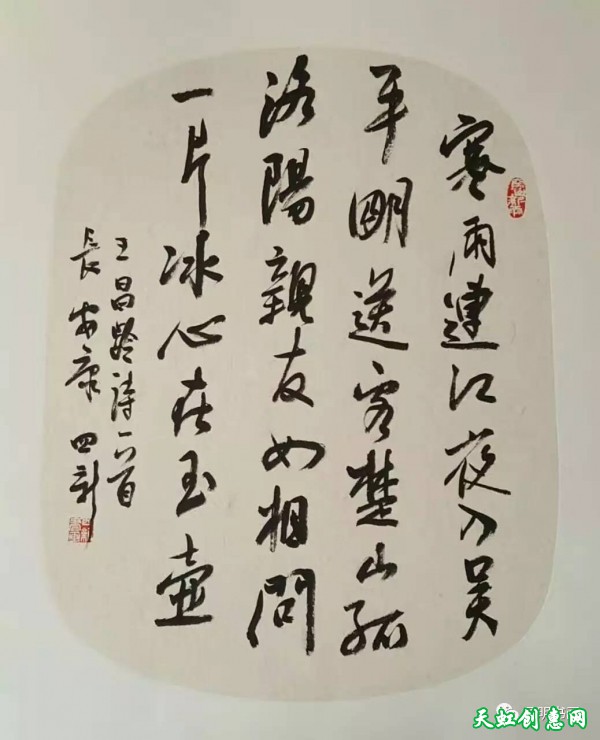 寒雨連江夜入吴
平明送客楚山孤
洛陽親友如相問
一片冰心在玉壺
王昌齡詩一首
長安康四新
天虹创惠网